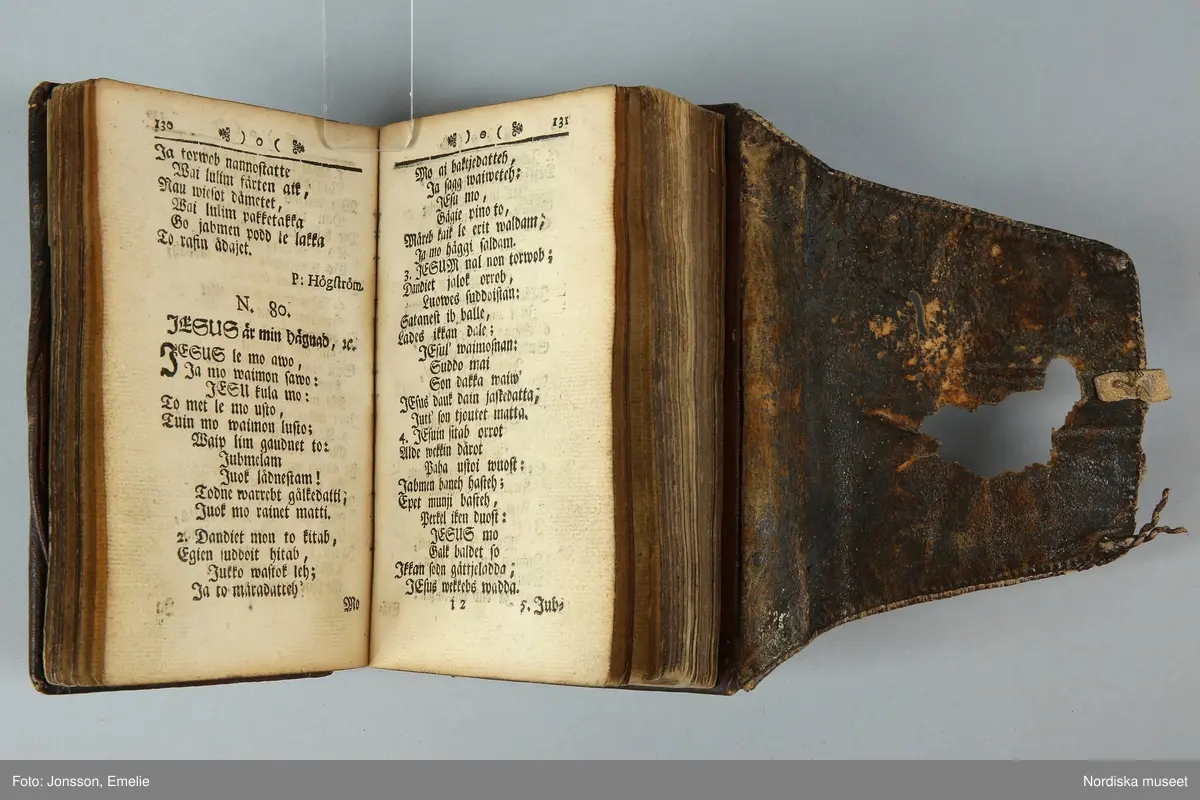 130 ) o (
Ja torwob nannostatte
Wai lulim färten aik,
Nau wiesot dåmetet,
Wai lulim pakketakka
Go jabmen podd le lakka
To rafin ådajet.
P: Högström.
N. 80.
JESUS är min hägnad, ꝛc.
JESUS le mo awo,
Ja mo waimon sawo:
JESU kula mo:
To met le mo usto,
Tuin mo waimon lusto;
Waip lim gaudnet to:
Jubmelam
Juok lådnestam!
Todne warrebt gälkedatti;
Juok mo rainet matti.
2. Dandiet mon to kitab,
Egien suddoit hitab,
Jukko wastok leh;
Ja to märadatteh
Mo
) o ( 131
Mo ai baktjedatteh,
Ja sagg waiweteh;
JEsu mo,
Gägie pino to,
Måreb kaik le erit waldam;
Ja mo häggi saldam.
3. JESUM nal non torwob;
Dandiet jalok orrob,
Luowes suddoistan:
Satanest ib balle,
Lades ikkan dale;
JEsus waimosnan:
Suddo mai
Son dakka waiw
JEsus dauk dain jaskedatta;
Jutt' son tjoutet matta.
4. JEsuin sitab orrot
Alde wekkin dårot
Paha ustoi wuost:
Jabmen baneh hasteh;
Epet munji basteh,
Perkel iken duost:
JESUS mo
Galk baldet so
Ikkan sodn gättjeladda;
JEsus wekkebs wadda.
I 2 5. Jub-
Foto: Jonsson, Emelie
Nordiska museet